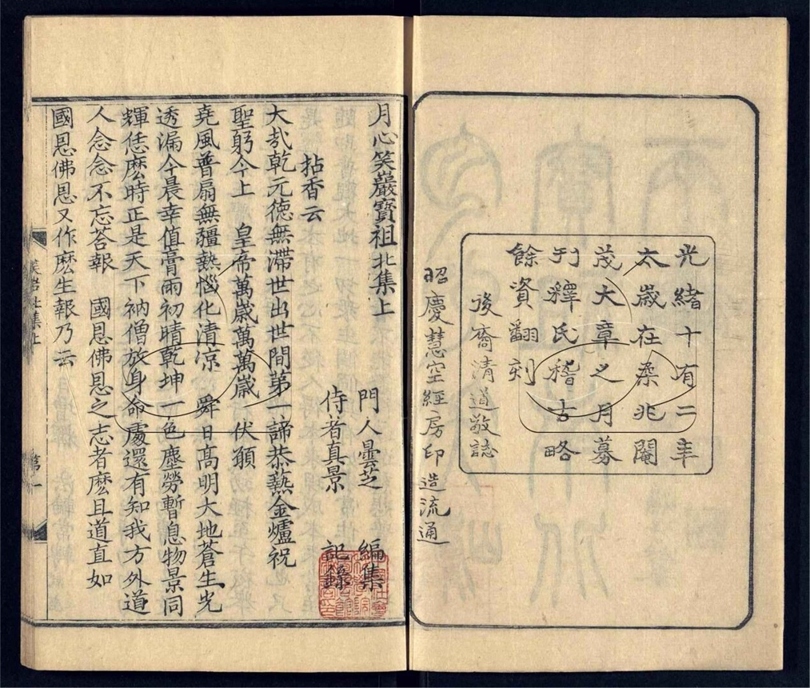 光緒十有二年
太歲在柔兆閹
茂大章之月募
刊釋氏稽古略
餘資翻刻
後裔清道敬誌
昭慶慧空經房印造流通
月心笑巖寶祖北集上
門人曇芝 編集
侍者真景 記錄
拈香云
大哉乾元德無滯世出世間第一諦恭爇金爐祝
聖躬今上 皇帝萬歲萬萬歲 伏願
堯風普扇無疆熱惱化清凉 舜日高明大地蒼生光
透漏今晨幸值膏雨初晴乾坤一色塵勞暫息物景同
輝恁麽時正是天下衲僧放身命處還有知我方外道
人念念不忘荅報 國恩佛恩之志者麽且道直如
國恩佛恩又作麽生報乃云
笑岩北集上
第一